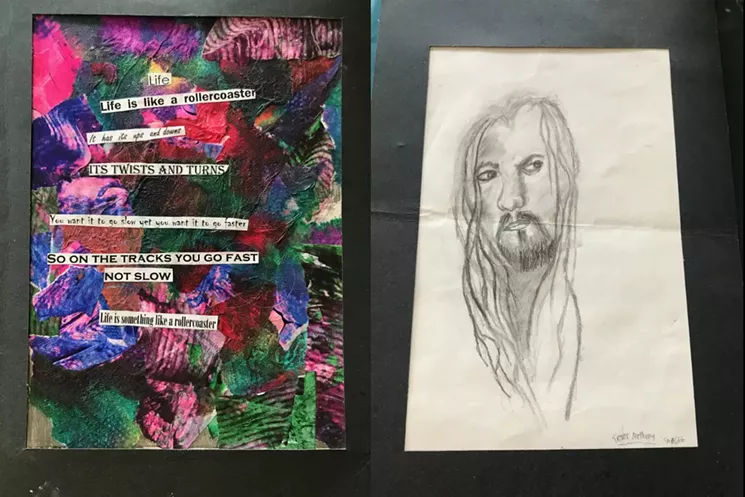 Life
Life is like a rollercoaster
Is has its ups and downs
ITS TWISTS AND TURNS
You want it to go slow yet you want it to go faster
SO ON THE TRACKS YOU GO FAST
NOT SLOW
Life is something like a rollercoaster
Anthony